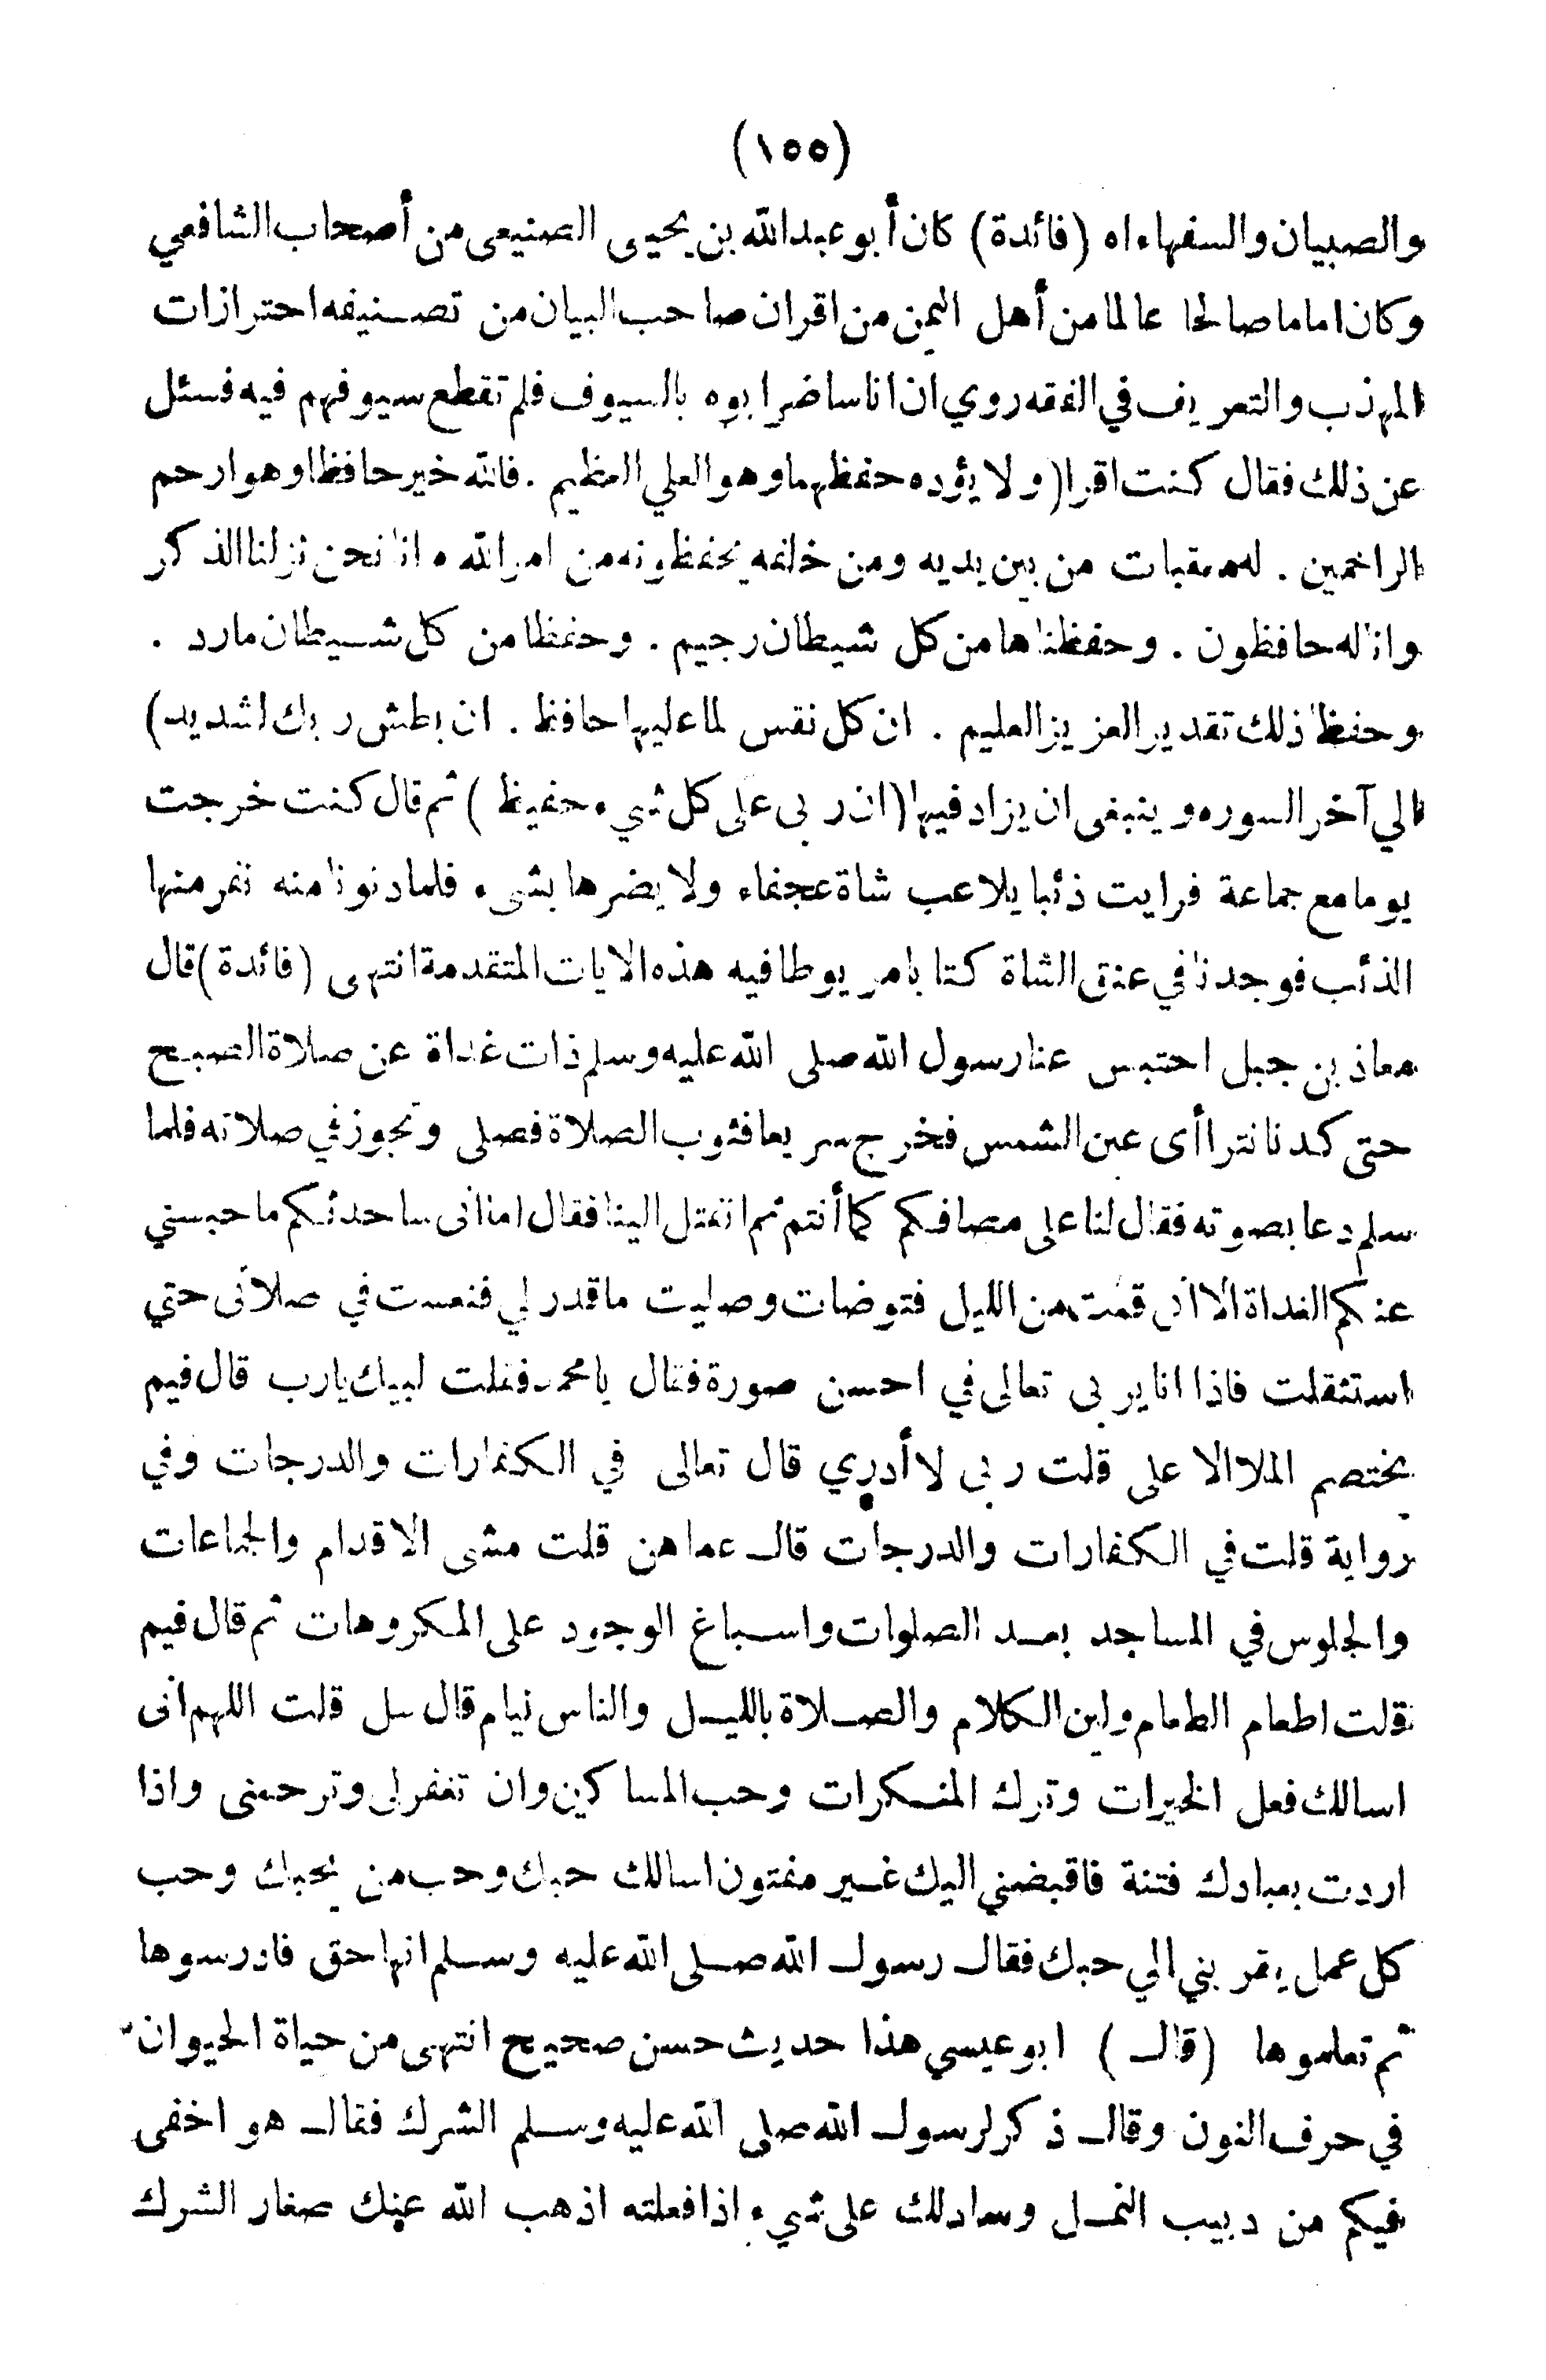 (١٥٥)
والصبيان والسفهاء اه (فائدة) كان أبو عبدالله بن يحيى الصنيعى من أصحاب الشافعي
وكان اماما صالحا عالما من أهل اليمن من اقران صاحب البيان من تصنيفه احترازات
المهذب والتعريف في الفقه روي ان اناسا ضرابوه بالسيوف فلم تقطع سيوفهم فيه فسئل
عن ذلك فقال كنت اقرا (ولا يؤده حفظهما وهو العلي العظيم . فالله خير حافظا وهو ارحم
الراحمين . له معقبات من بين يديه ومن خلفه يحفظونه من امر الله . انا نحن نزلنا الذكر
وانا له حافظون . وحفظناها من كل شيطان رجيم . وحفظا من كل شيطان مارد .
وحفظا ذلك تقدير العزيز العليم . ان كل نفس لما عليها حافظ . ان بطش ربك لشديد)
الي آخر السوره وينبغى ان يزاد فيها (ان ربى على كل شيء حفيظ) ثم قال كنت خرجت
يوما مع جماعة فرايت ذئبا يلاعب شاة عجفاء ولا يضرها بشىء فلما دنونا منه نفر منها
الذئب فوجدنا في عنق الشاة كتابا مربوطا فيه هذه الايات المتقدمة انتهى (فائدة) قال
معاذ بن جبل احتبس عنا رسول الله صلى الله عليه وسلم ذات غداة عن صلاة الصبح
حتى كدنا نترا أى عين الشمس فخرج سريعا فثوب الصلاة فصلى وتجوز في صلاته فلما
سلم دعا بصوته فقال لنا على مصافكم كما أنتم ثم انفتل الينا فقال اما انى ساحدثكم ما حبسني
عنكم الغداة الا انى قمت من الليل فتوضات وصليت ما قدر لي فنعست في صلاتى حتي
استثقلت فاذا انا بربى تعالى في احسن صورة فقال يا محمد فقلت لبيك يارب قال فيم
يختصم الملا الا على قلت ربى لا أدري قال تعالى في الكفارات والدرجات وفي
رواية قلت في الكفارات والدرجات قال عما هن قلت مشى الاقدام والجماعات
والجلوس في المساجد بعد الصلوات واسباغ الوجود على المكروهات ثم قال فيم
قلت اطعام الطعام ولين الكلام والصلاة بالليل والناس نيام قال سل قلت اللهم انى
اسالك فعل الخيرات وترك المنكرات وحب المساكين وان تغفر لى وترحمنى واذا
اردت بعبادك فتنة فاقبضني اليك غير مفتون اسالك حبك وحب من يحبك وحب
كل عمل يقربني الي حبك فقال رسول الله صلى الله عليه وسلم انها حق فادرسوها
ثم تعلموها (قال) ابو عيسي هذا حديث حسن صحيح انتهى من حياة الحيوان
في حرف النون وقال ذكر لرسول الله صلى الله عليه وسلم الشرك فقال هو اخفى
فيكم من دبيب النمل وسادلك على شيء اذا فعلته اذهب الله عنك صغار الشرك